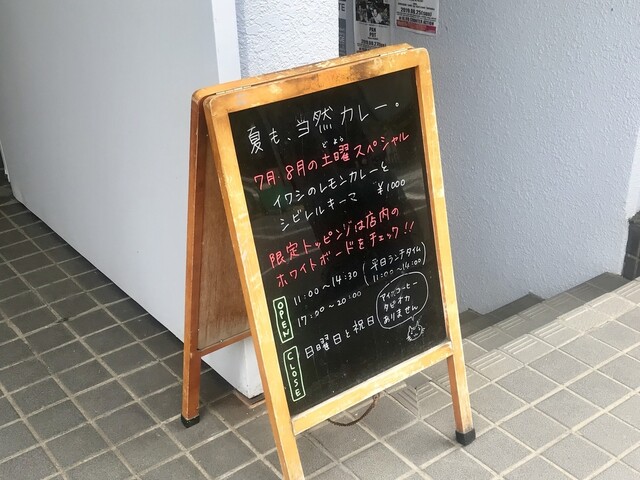 夏も、当然カレー。
7月・8月の土曜スペシャル
どよう
イワシのレモンカレーと
シビレルキーマ ¥1000
限定トッピングは店内の
ホワイトボードをチェック!!
OPEN
11:00～14:30 (平日ランチタイム 11:00～14:00)
17:00～20:00
CLOSE
日曜日と祝日
アイスコーヒー
タピオカ
ありません